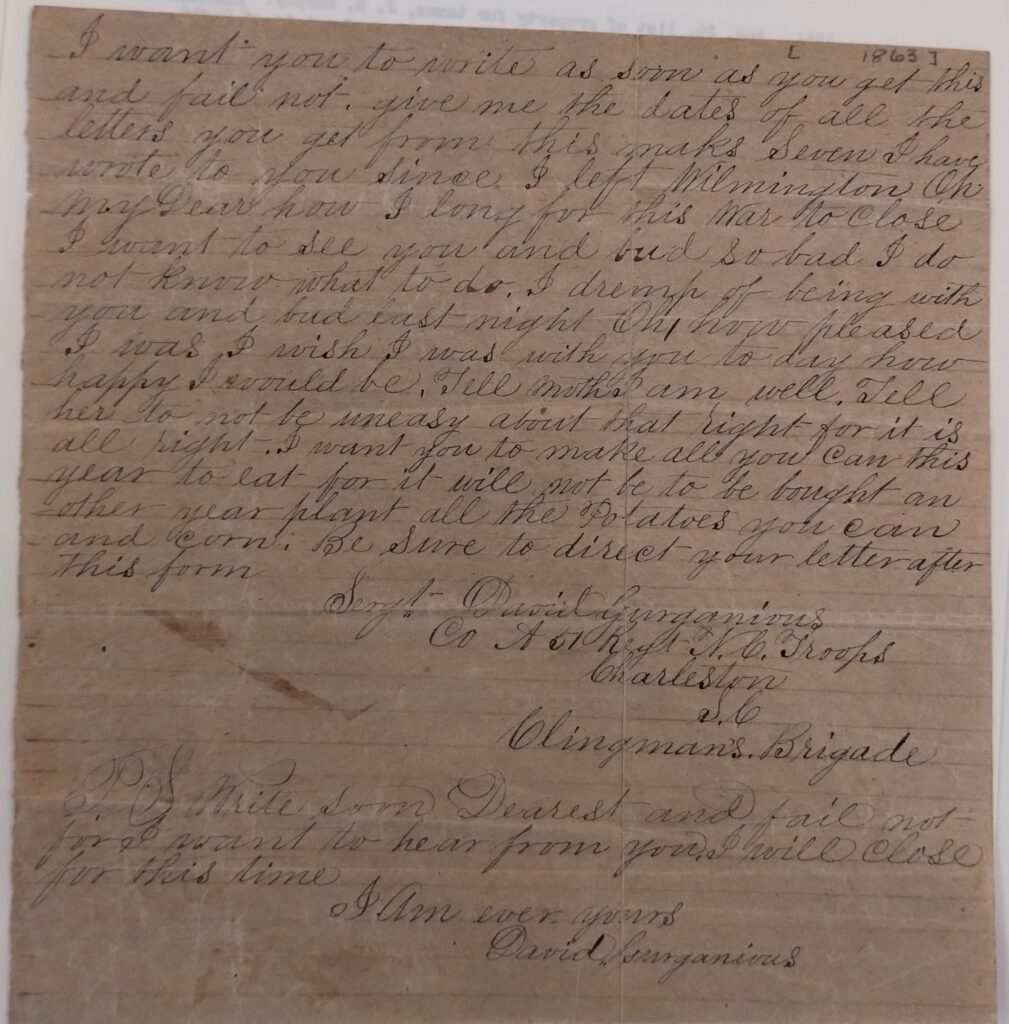 [ 1863 ]
I want you to write as soon as you get this
and fail not. give me the dates of all the
letters you get from this maks Seven I have
wrote to you since I left Wilmington Oh
my Dear how I long for this War to close
I want to see you and bud so bad I do
not know what to do. I dremp of being with
you and bud last night Oh, how pleased
I was I wish I was with you to day how
happy I would be. Tell moth I am well. Tell
her to not be uneasy about that right for it is
all right. I want you to make all you can this
year to eat for it will not be to be bought an
other year plant all the Potatoes you can
and corn. Be sure to direct your letter after
this form
Sergt David Gurganious
Co A 51 Regt N.C. Troops
Charleston
S.C
Clingman's Brigade
P.S Write soon Dearest and fail not
for I want to hear from you. I will close
for this time
I Am ever yours
David Gurganious